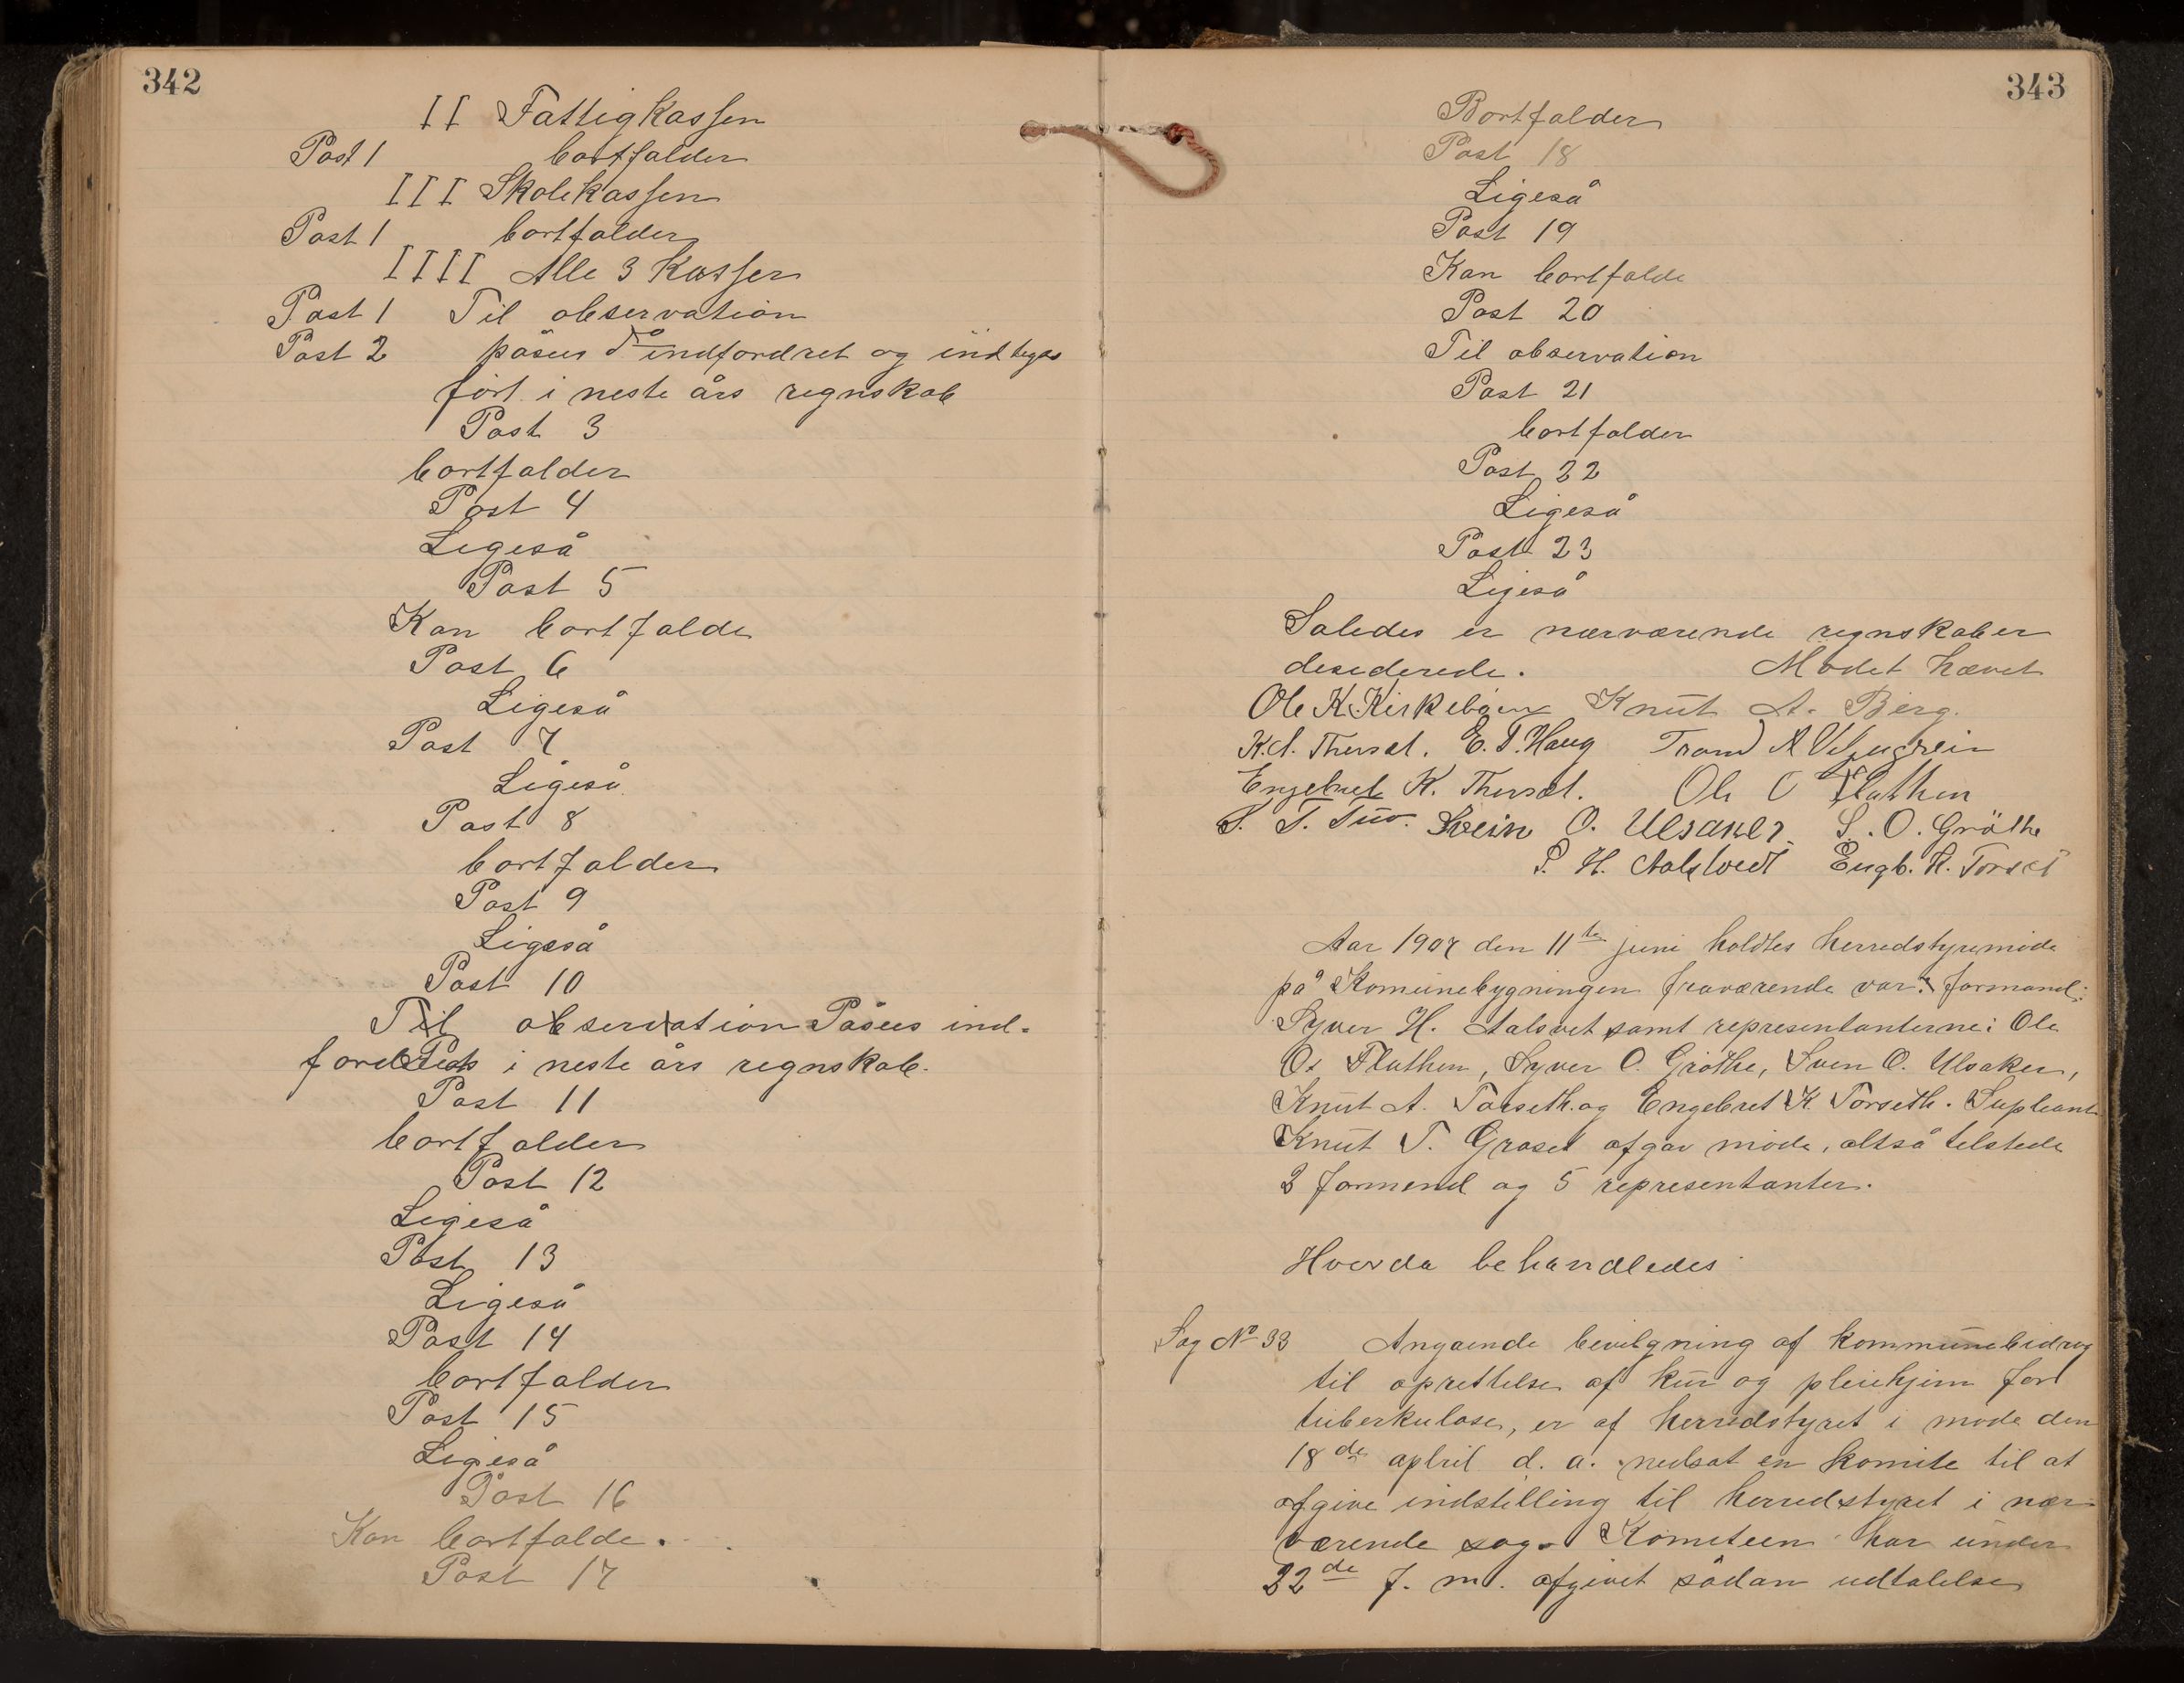 342
II Fattigkassen
Post 1 bortfalder
III Skolekassen
Post 1 bortfalder
IIII Alle 3 Kasser
Post 1 Til observation
Post 2 påsees indfordret og indtegs
ført i neste års regnskab
Post 3
bortfalder
Post 4
Ligeså
Post 5
Kan bortfalde
Post 6
Ligeså
Post 7
Ligeså
Post 8
bortfalder
Post 9
Ligeså
Post 10
Til observation Påsees ind-
i neste års regnskab.
Post 11
bortfalder
Post 12
Ligeså
Post 13
Ligeså
Post 14
bortfalder
Post 15
Ligeså
Post 16
Kan bortfalde.
Post 17
343
Bortfalder
Post 18
Ligeså
Post 19
Kan bortfalde
Post 20
Til observation
Post 21
bortfalder
Post 22
Ligeså
Post 23
Ligeså
Saledes er nærværende regnskaber
desederede. Mødet hævet
Ole K. Kirkebøen Knut A. Berg.
K. A. Thorset. E. T. Haug Trond A
Engebret K. Thorset. Ole O Flathen
S. T. Tuv. Svein O. Ulsaker. S. O. Grøthe
S. H. Aalstvedt Engb. K. Torset
Aar 1907 den 11te juni holdtes herredstyremøde
på Komunebygningen fraværende var: formand:
Syver H. Aalsvet samt representanterne: Ole
O. Flathen, Syver O. Grøthe, Sven O. Ulsaker,
Knut A. Torseth. og Engebret K. Torseth. Supleant
Knut T. Graset afgav møde, altså tilstede
3 formend og 5 representanter.
Hvorda behandledes
Sag No 33 Angaende bevilgning af kommunebidrag
til oprettelse af kur og pleiehjem for
tuberkulose, er af herredstyret i møde den
18de april d. a. nedsat en komite til at
afgive indstilling til herredstyret i nær-
værende sag. Kometeen har under
22de f. m. afgivet sådan udtalelse